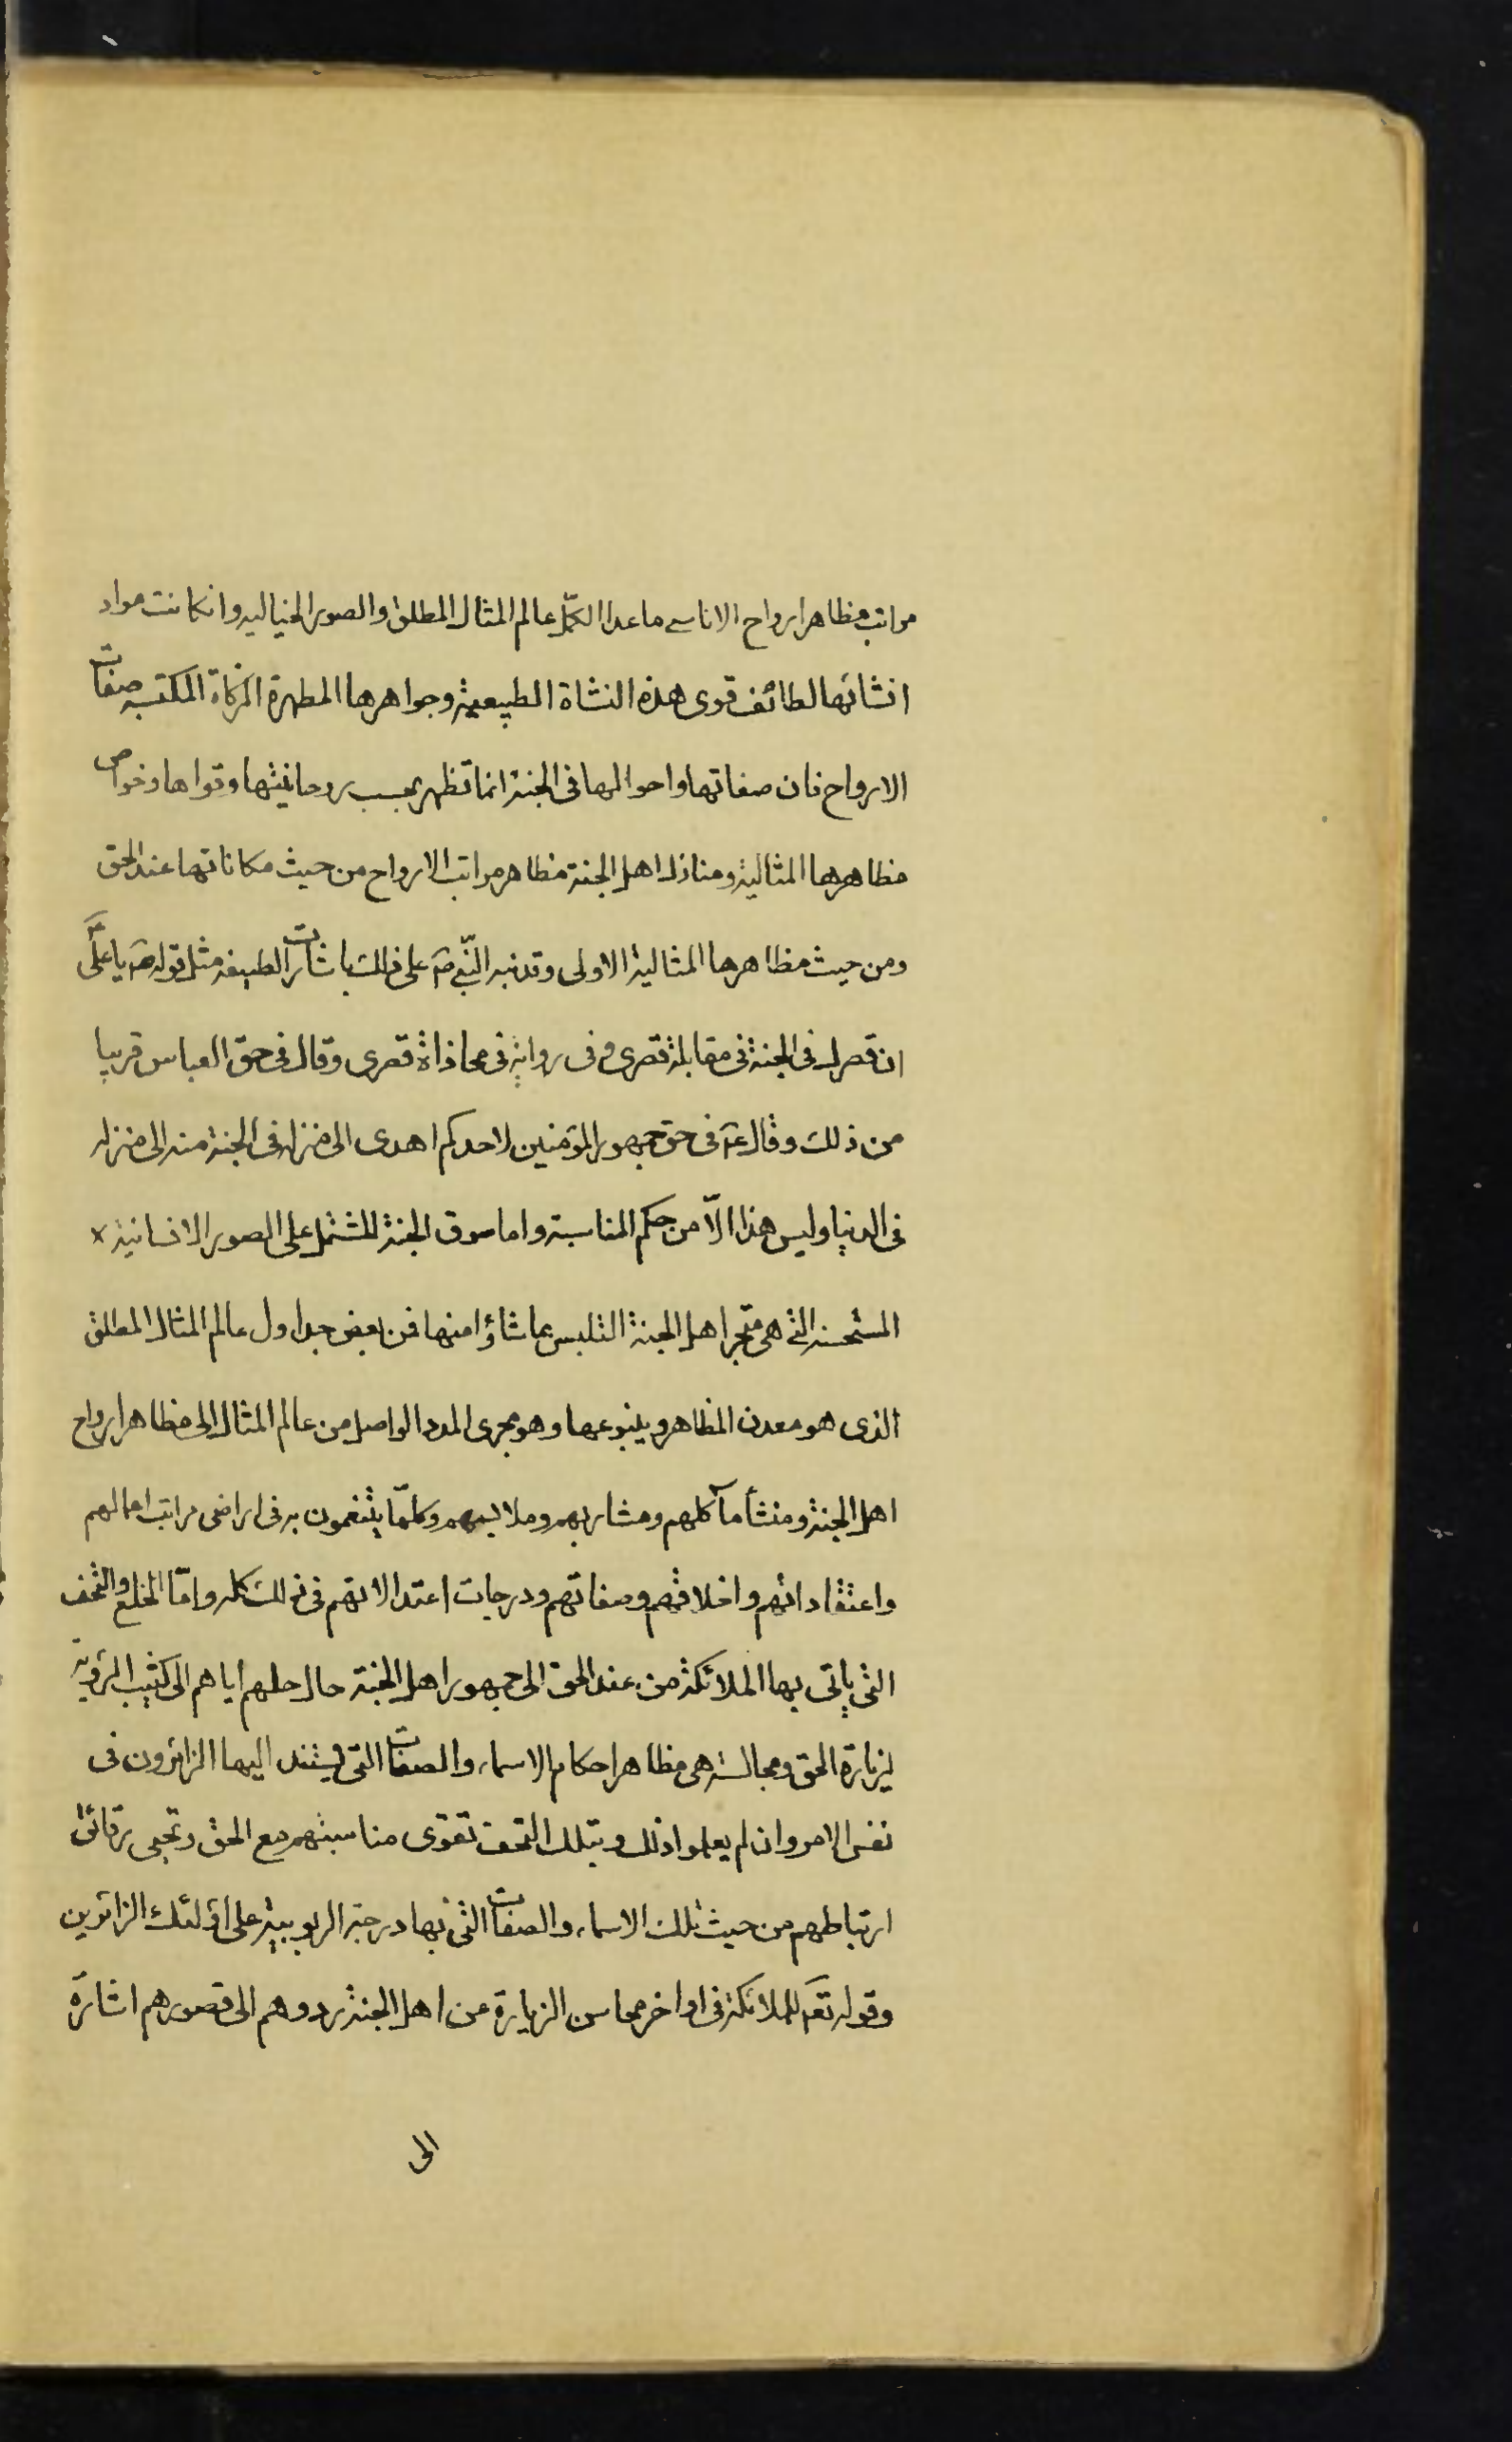 مراتب مظاهر ارواح الاناسى ما عدا الكمّل عالم المثال المطلق والصور الخياليه وانكانت مواد
انشائها لطائف قوى هذه النشاة الطبيعية وجواهرها المطهرة المزكاة المكتسبه صفات
الارواح فان صفاتها واحوالها فى الجنة انما تظهر بحسب روحانيتها وقواها وخواص
مظاهرها المثالية ومنازل اهل الجنة مظاهر مراتب الارواح من حيث مكاناتها عند الحق
ومن حيث مظاهرها المثالية الاولى وقد نبه النّبى صَ على ذلك باشارات لطيفه مثل قوله صَ يا علىَّ
ان قصرك فى الجنة فى مقابلة قصرى وفى رواية فى محاذاة قصرى وقال فى حق العباس قريبا
من ذلك وقال عَ فى حق جمهور المؤمنين لاحدكم اهدى الى منزله فى الجنة منه الى منزله
فى الدنيا وليس هذا الاّ من حكم المناسبة واما سوق الجنة المشتمل على الصور الانسانية x
المستحسنه التى هى متجر اهل الجنة التلبس بما شاؤا منها فمن بعض جداول عالم المثال المطلق
الذى هو معدن المظاهر وينبوعها وهو مجرى المدد الواصل من عالم المثال الى مظاهر ارواح
اهل الجنة ومنشأ مآكلهم ومشاربهم وملابسهم وكلمّا يتنعمون به فى اراضى مراتب اعمالهم
واعتقاداتهم واخلاقهم وصفاتهم ودرجات اعتدالاتهم فى ذلك كله وامّا الخلع والتحف
التى ياتى بها الملائكة من عند الحق الى جمهور اهل الجنة حال حملهم اياهم الى كثيب الرؤية
لزيارة الحق ومجالسته هى مظاهر احكام الاسماء والصفات التى يستند اليها الزائرون فى
نفس الامر وان لم يعلموا ذلك وبتلك التحف تقوى مناسبتهم مع الحق وتحيى رقائق
ارتباطهم من حيث تلك الاسماء والصفات التى بها درجة الربوبية على اولئك الزائرين
وقوله تعَ للملائكة فى اواخر مجاس الزيارة عن اهل الجنة ردوهم الى قصورهم اشارَة
الى